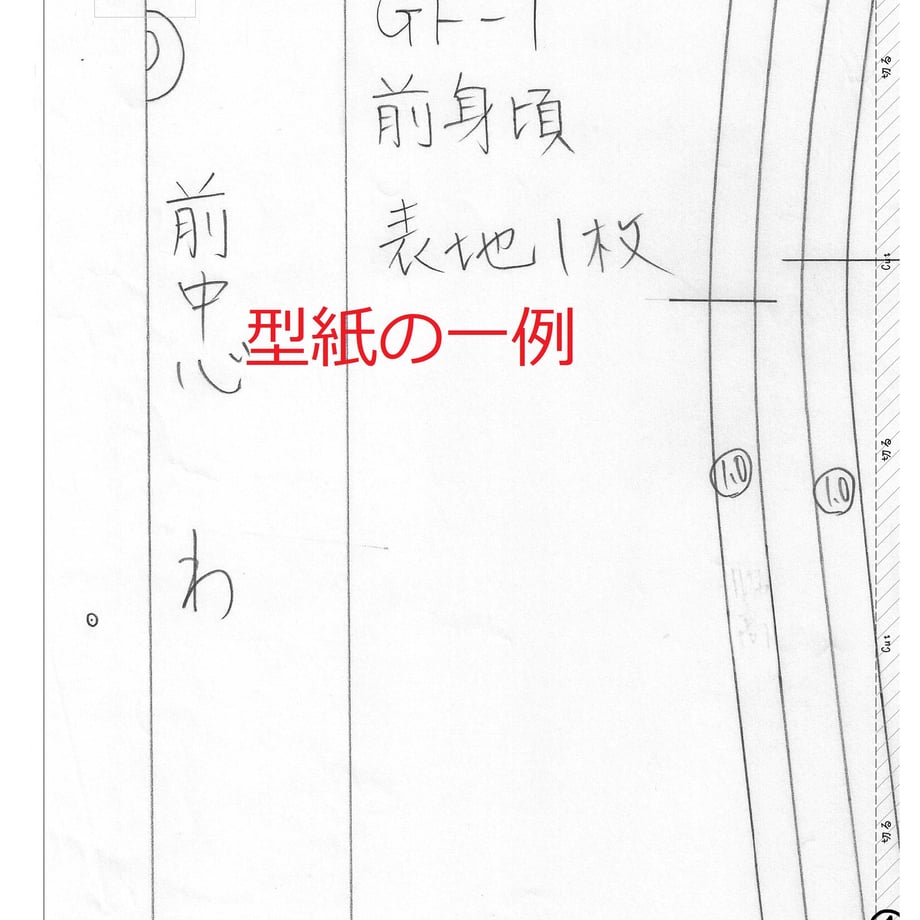 前身頃
表地1枚
前中心
型紙の一例
わ
1.0
1.0
切る
Cut
切る
Cut
切る